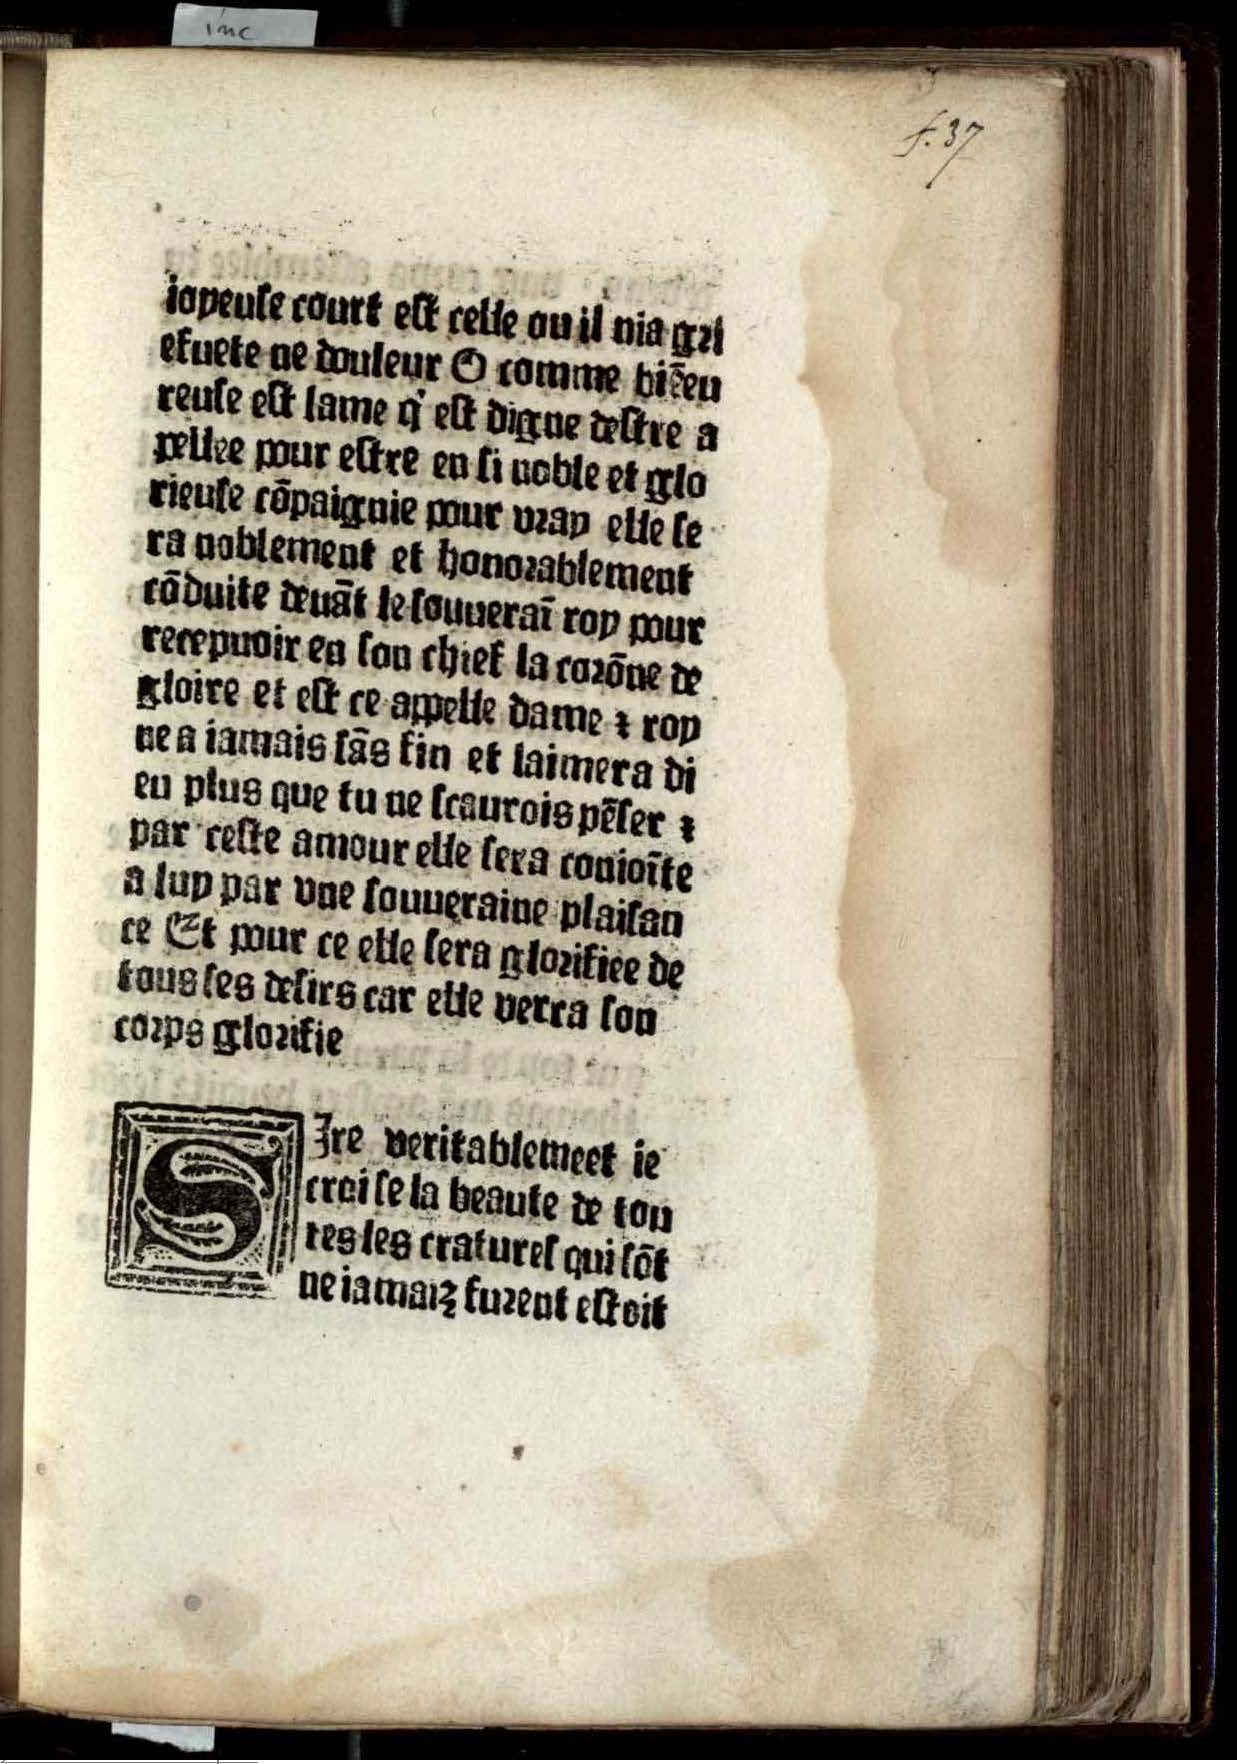 inc
f. 37
ioyeuse court est celle ou il nia gri
efuete ne douleur O comme biẽeu
reuse est lame q' est digne destre a
pellee pour estre en si noble et glo
rieuse cõpaignie pour vray elle se
ra noblement et honorablement
cõduite deuãt le souuerai᷈ roy pour
recepuoir en son chief la corõne de
gloire et est ce appelle dame ⁊ roy
ne a iamais sãs fin et laimera di
eu plus que tu ne scaurois pẽser ⁊
par ceste amour elle sera conioĩte
a luy par vne souueraine plaisan
ce Et pour ce elle sera glorifiee de
tous ses desirs car elle verra son
corps glorifie
SIre veritablemeet ie
croi se la beaute de tou
tes les cratures qui sõt
ne iamaiz furent estoit